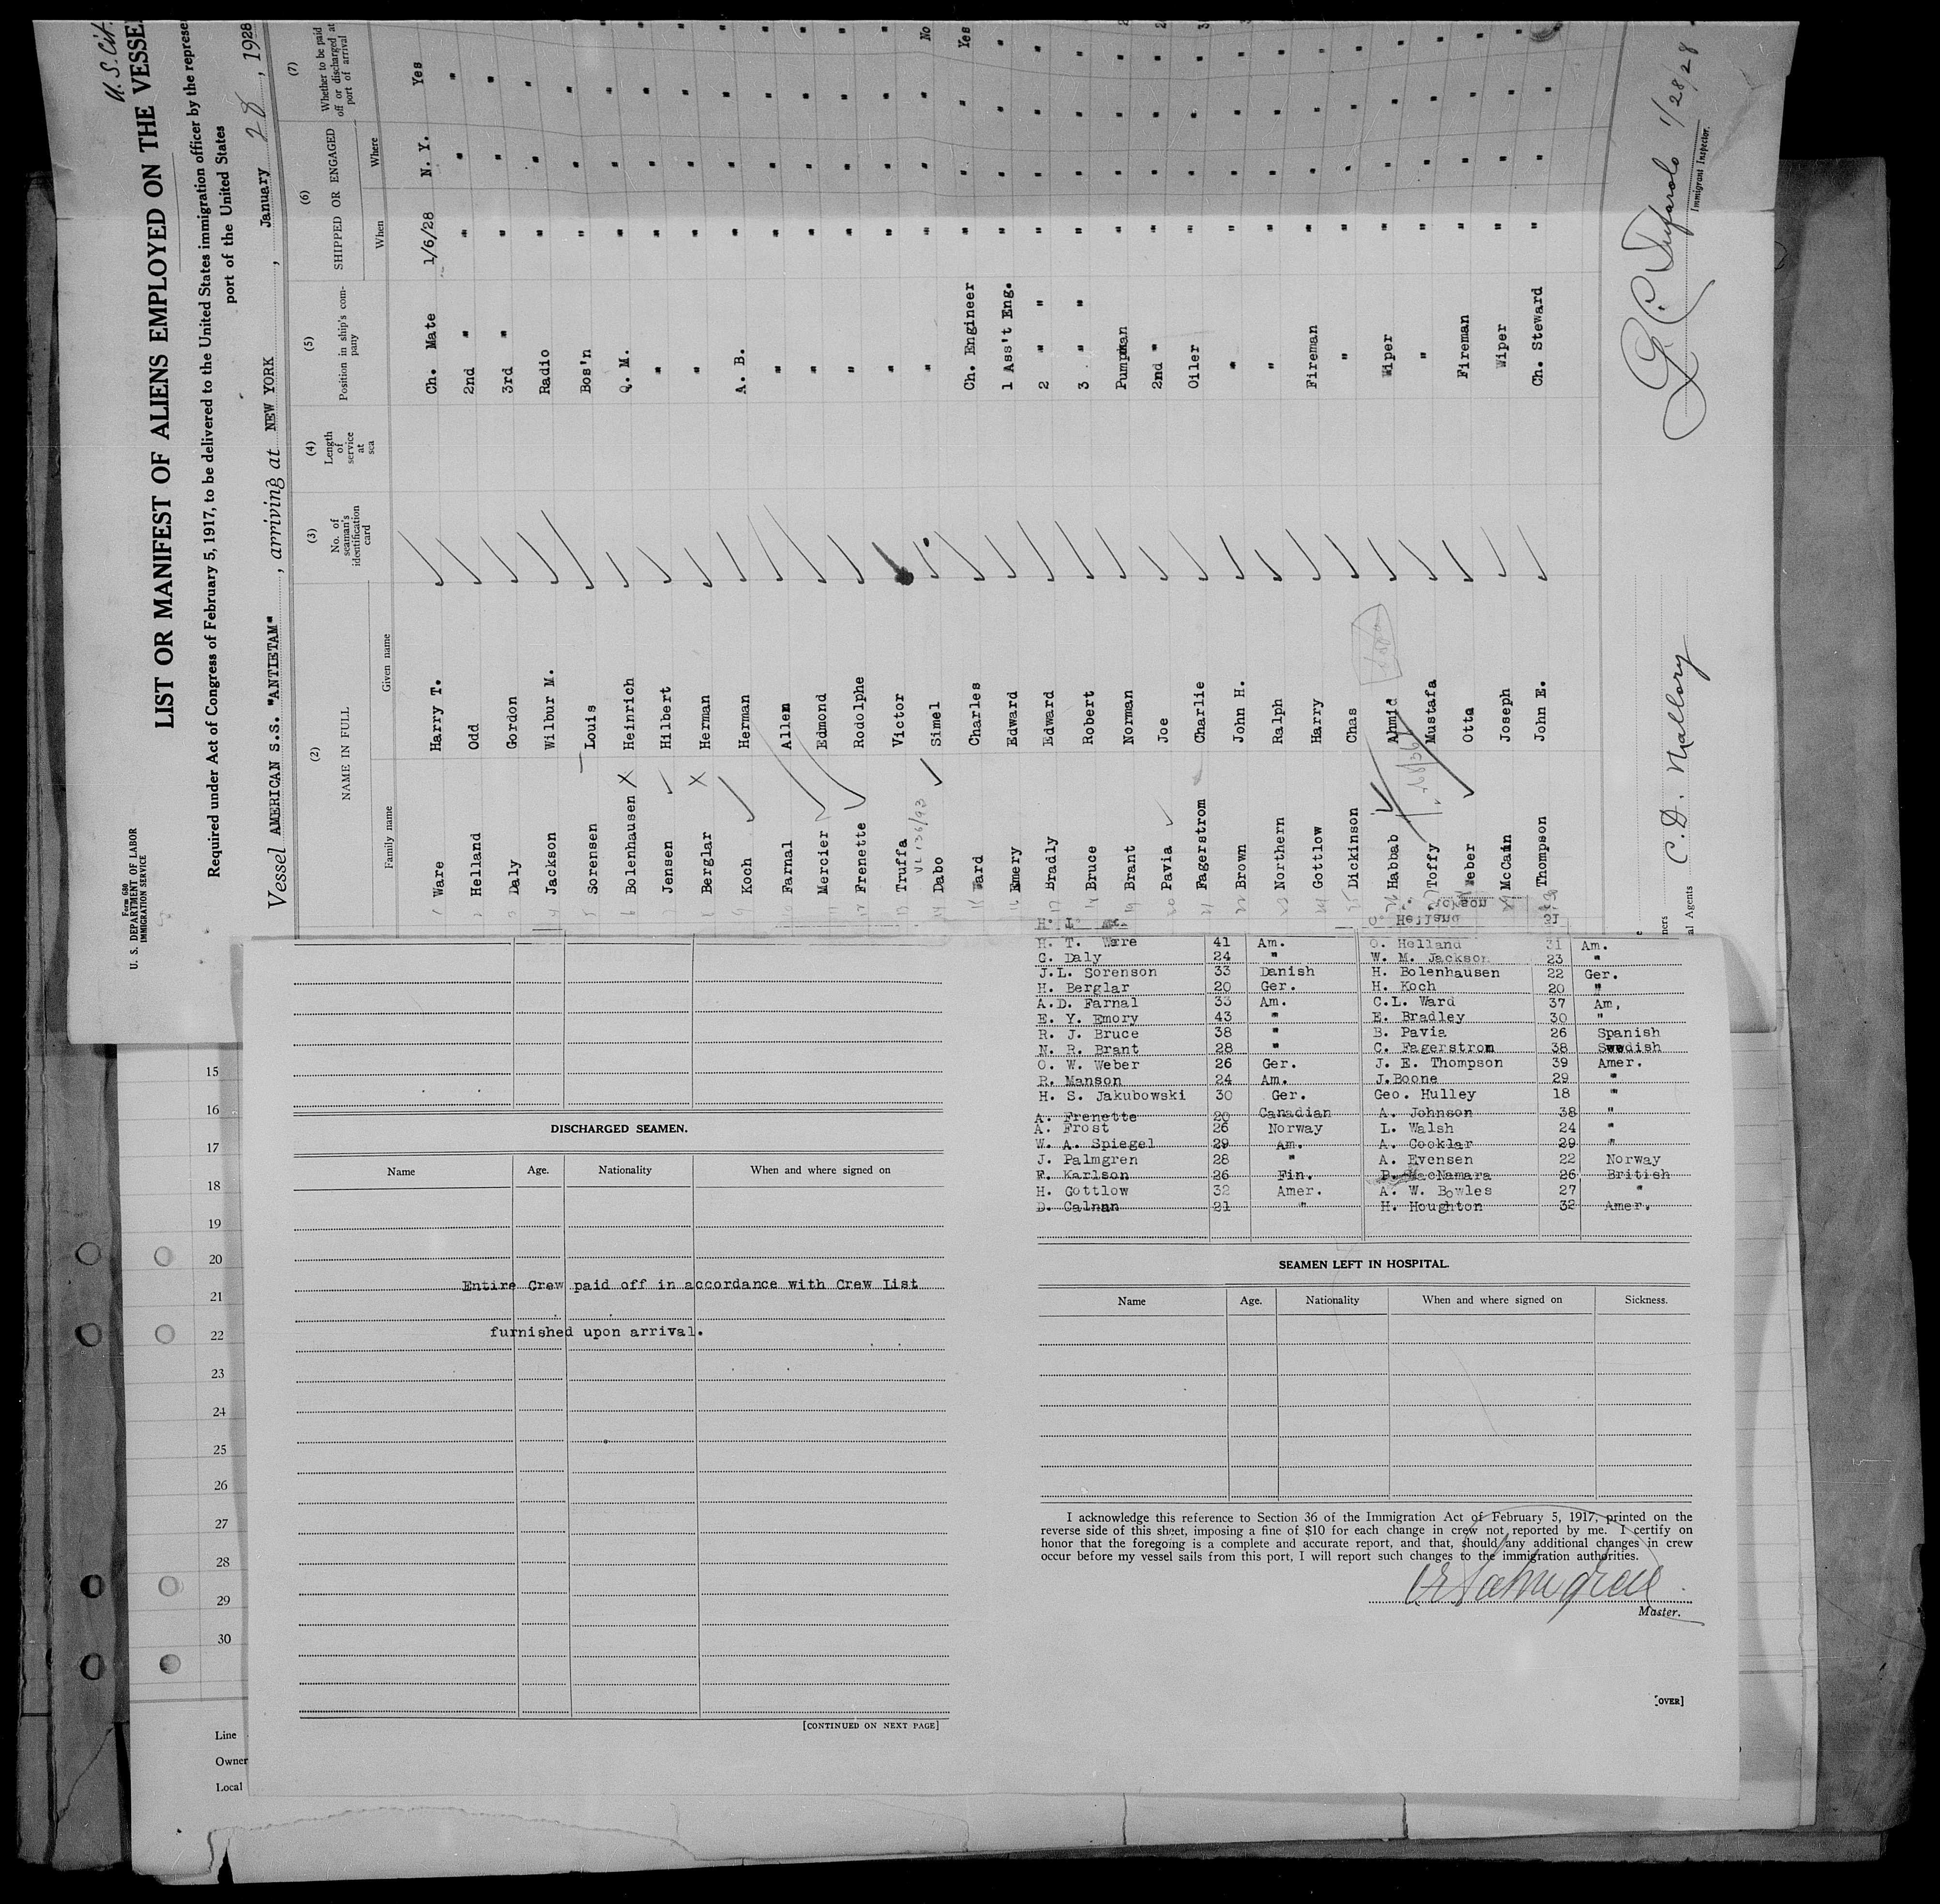 U. S. Cit.
Form 680
U. S. DEPARTMENT OF LABOR
IMMIGRATION SERVICE
LIST OR MANIFEST OF ALIENS EMPLOYED ON THE VESSE
Required under Act of Congress of February 5, 1917, to be delivered to the United States immigration officer by the represe
port of the United States
Vessel AMERICAN S.S. "ANTIETAM", arriving at NEW YORK, January 28, 1928
(2) (3) (4) (5) (6) (7)
NAME IN FULL
Family name Given name
No. of seaman's identification card
Length of service at sea
Position in ship's company
SHIPPED OR ENGAGED
When Where
Whether to be paid off or discharged at port of arrival
1 Ware Harry T. Ch. Mate 1/6/28 N. Y. Yes
2 Helland Odd 2nd " " " "
3 Daly Gordon 3rd " " " "
4 Jackson Wilbur M. Radio " " "
5 Sorensen Louis Bos'n " " "
6 Bolenhausen X Heinrich Q. M. " " "
7 Jensen Hilbert " " " "
8 Berglar X Herman " " " "
Koch Herman A. B. " " "
10 Farnal Allen " " " "
11 Mercier Edmond " " " "
12 Frenette Rodolphe " " " "
13 Truffa Victor " " " "
14 Dabo Simel " " " " No
15 Ward Charles Ch. Engineer " " " Yes
16 Emery Edward 1 Ass't Eng. " " " "
17 Bradly Edward 2 " " " " " "
18 Bruce Robert 3 " " " " " "
19 Brant Norman Pumpman " " " "
20 Pavia Joe 2nd " " " "
21 Fagerstrom Charlie Oiler " " "
22 Brown John H. " " " " "
23 Northern Ralph " " " " "
24 Gottlow Harry Fireman " " " "
25 Dickinson Chas " " " " "
26 Habbab Ahmid Wiper " " " "
27 Toffy Mustafa " " " " "
28 Weber Otto Fireman " " " "
29 McCain Joseph Wiper " " " "
Thompson John E. Ch. Steward " " "
C. D. Mallory
1/28/28
Immigrant Inspector.
H. T. Ware 41 Am. O. Helland 31 Am.
C. Daly 24 " W. M. Jackson 23 "
J.L. Sorenson 33 Danish H. Bolenhausen 22 Ger.
H. Berglar 20 Ger. H. Koch 20 "
A.D. Farnal 33 Am. C.L. Ward 37 Am,
E. Y. Emory 43 " E. Bradley 30 "
R. J. Bruce 38 " B. Pavia 26 Spanish
N. R. Brant 28 " C. Fagerstrom 38 Swedish
O. W. Weber 26 Ger. J. E. Thompson 39 Amer.
R. Manson 24 Am. J.Boone 29 "
H. S. Jakubowski 30 Ger. Geo. Hulley 18 "
A. Frenette 20 Canadian A. Johnson 38 "
A. Frost 26 Norway L. Walsh 24 "
W. A. Spiegel 29 Am. A. Cooklar 29 "
J. Palmgren 28 " A. Evensen 22 Norway
F. Karlson 26 Fin. P. MacNamara 26 British
H. Gottlow 32 Amer. A. W. Bowles 27 "
D. Calnan 21 " H. Houghton 32 Amer.
DISCHARGED SEAMEN.
Name Age. Nationality When and where signed on
Entire Crew paid off in accordance with Crew List
furnished upon arrival.
[CONTINUED ON NEXT PAGE]
SEAMEN LEFT IN HOSPITAL.
Name Age. Nationality When and where signed on Sickness.
I acknowledge this reference to Section 36 of the Immigration Act of February 5, 1917, printed on the
reverse side of this sheet, imposing a fine of $10 for each change in crew not reported by me. I certify on
honor that the foregoing is a complete and accurate report, and that, should any additional changes in crew
occur before my vessel sails from this port, I will report such changes to the immigration authorities.
Master.
[OVER]
15
16
17
18
19
20
21
22
23
24
25
26
27
28
29
30
Line
Owner
Local